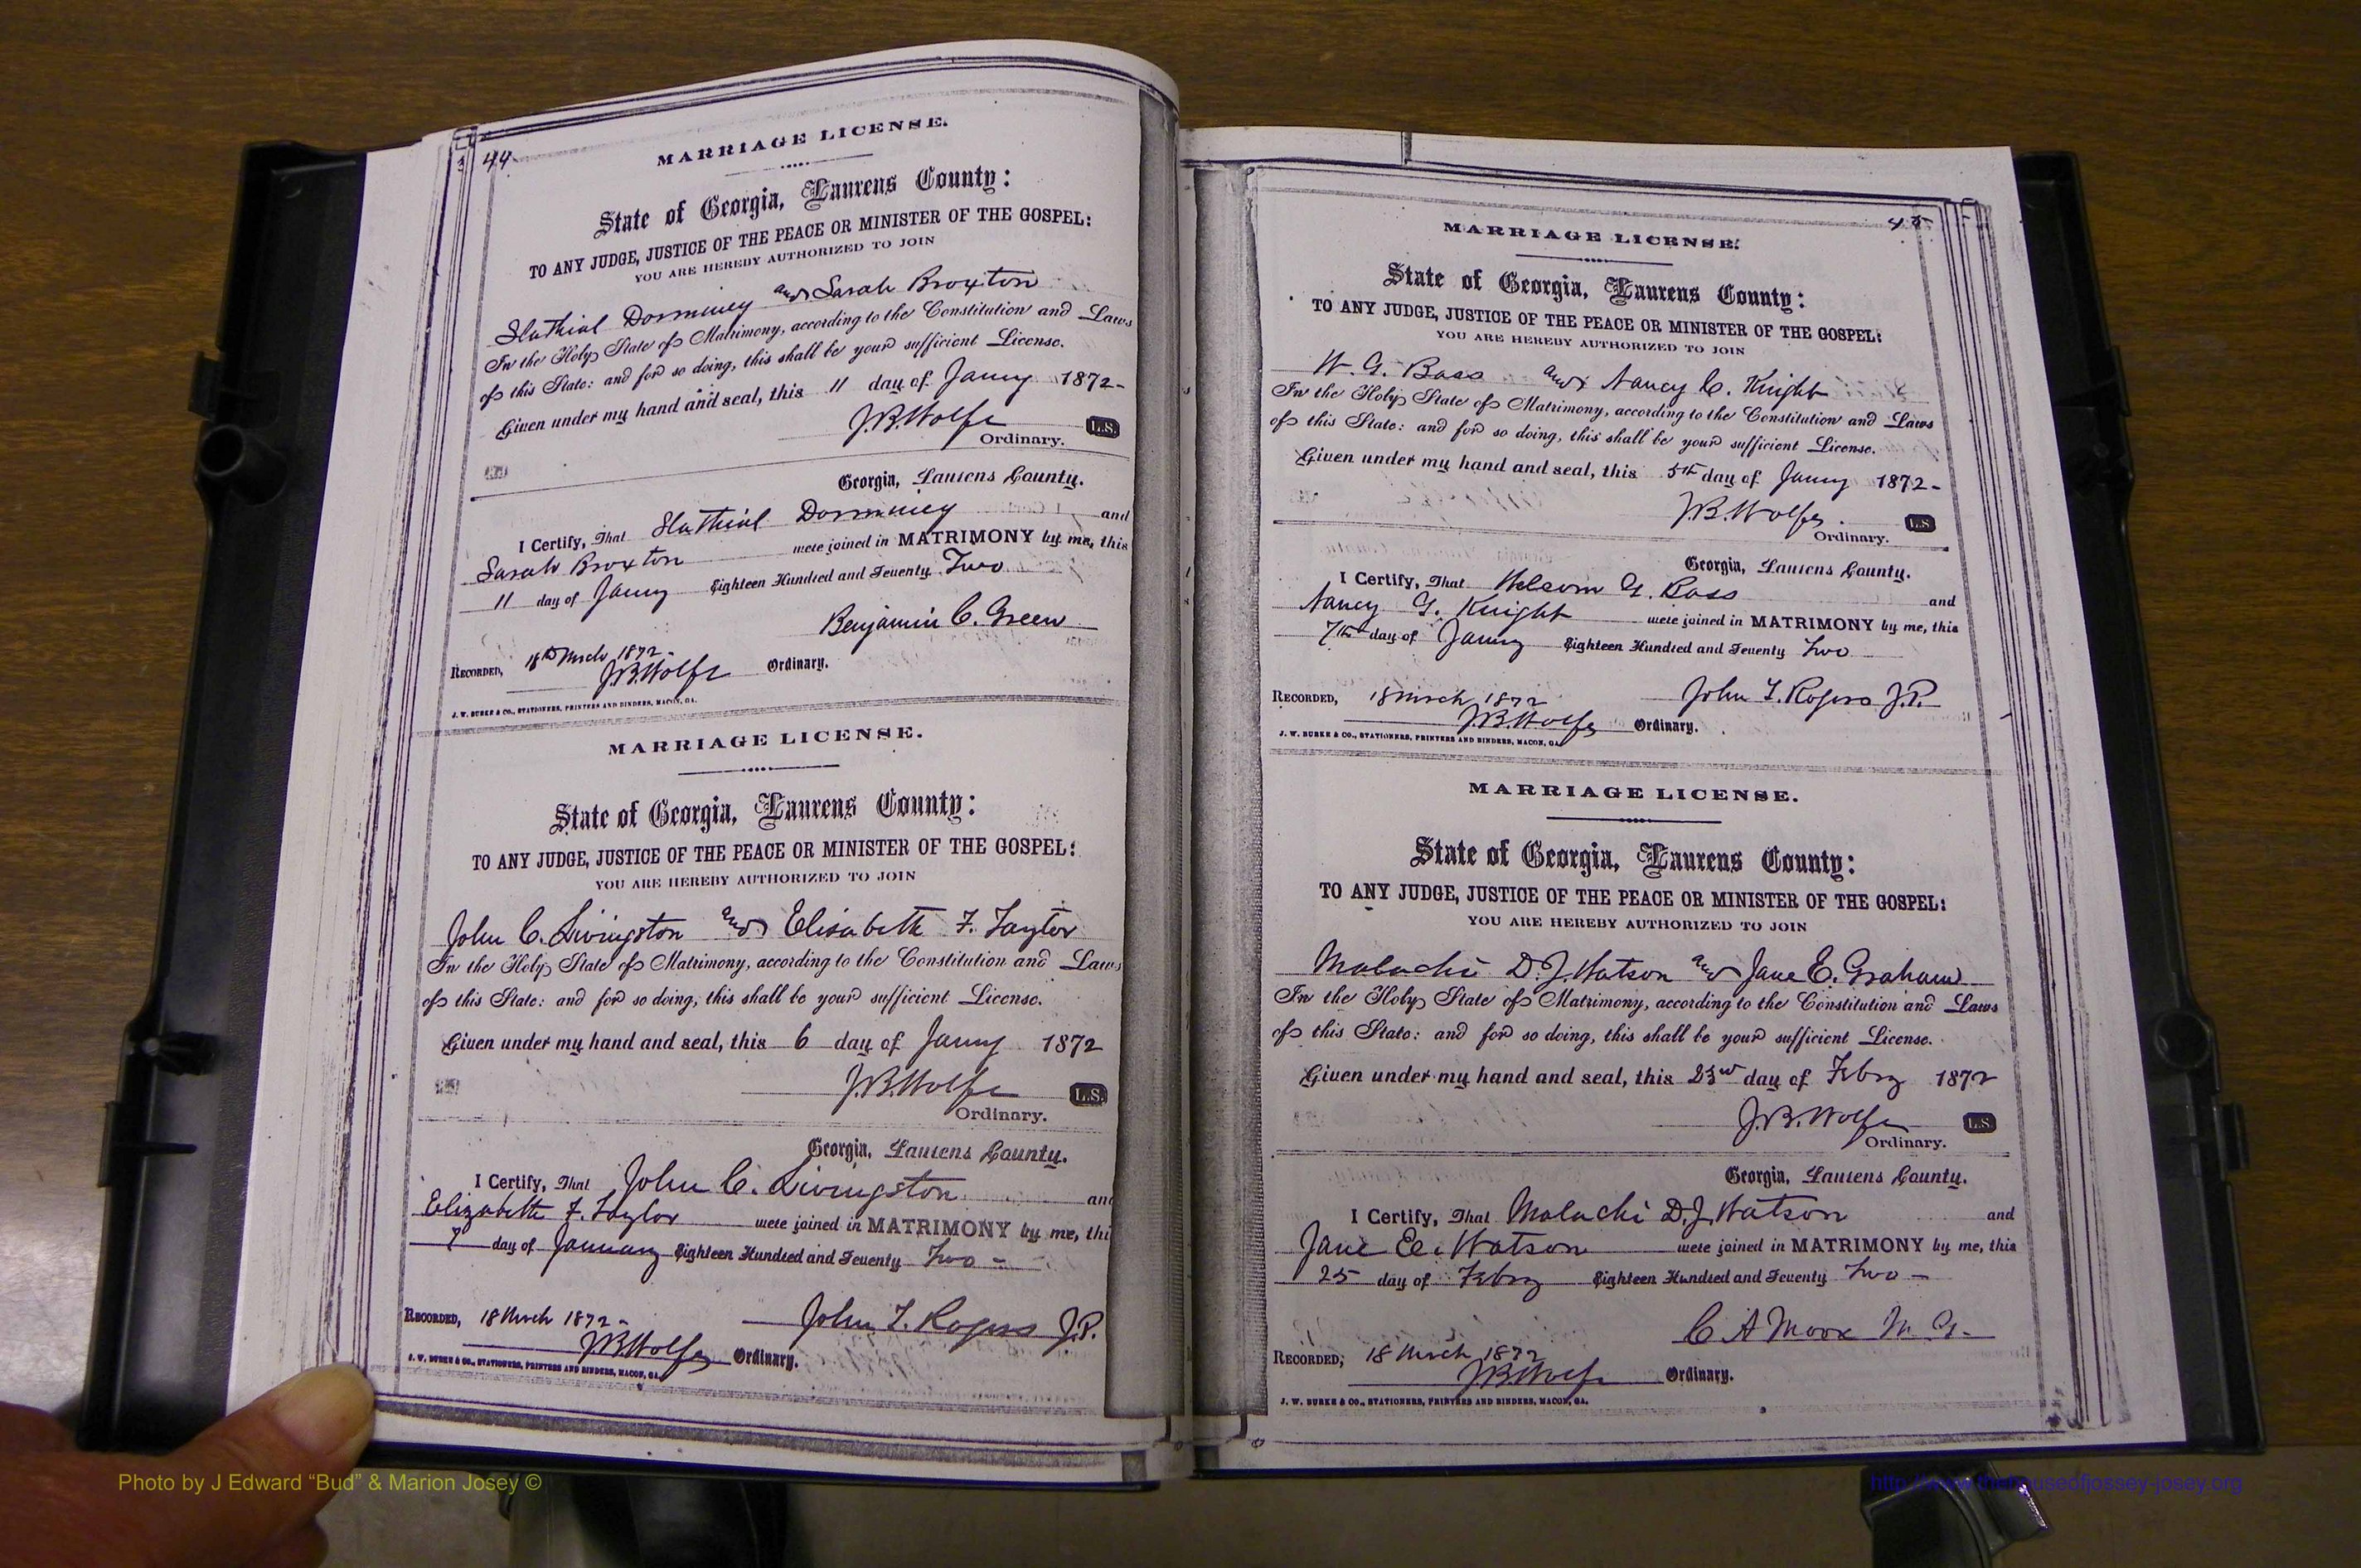 44
MARRIAGE LICENSE.
State of Georgia, Laurens County:
TO ANY JUDGE, JUSTICE OF THE PEACE OR MINISTER OF THE GOSPEL:
YOU ARE HEREBY AUTHORIZED TO JOIN
Slathial Dorminey and Sarah Broxton
In the Holy State of Matrimony, according to the Constitution and Laws
of this State: and for so doing, this shall be your sufficient License.
Given under my hand and seal, this 11 day of Janny 1872-
J.B. Wolfe L.S.
Ordinary.
Georgia, Laurens County.
I Certify, That Slathial Dorminey and
Sarah Broxton were joined in MATRIMONY by me, this
11 day of Janny Eighteen Hundred and Seventy Two
Benjamin C. Green
RECORDED, 18th March 1872-
J.B. Wolfe Ordinary.
J. W. BURKE & CO., STATIONERS, PRINTERS AND BINDERS, MACON, GA.
MARRIAGE LICENSE.
State of Georgia, Laurens County:
TO ANY JUDGE, JUSTICE OF THE PEACE OR MINISTER OF THE GOSPEL:
YOU ARE HEREBY AUTHORIZED TO JOIN
John C. Livingston and Elisabeth F. Taylor
In the Holy State of Matrimony, according to the Constitution and Laws
of this State: and for so doing, this shall be your sufficient License.
Given under my hand and seal, this 6 day of Janny 1872
J.B. Wolfe L.S.
Ordinary.
Georgia, Laurens County.
I Certify, That John C. Livingston and
Elizabeth F. Taylor were joined in MATRIMONY by me, thi
7 day of January Eighteen Hundred and Seventy Two -
RECORDED, 18 March 1872- John T. Rogers J.P.
J.B. Wolfe Ordinary.
J. W. BURKE & CO., STATIONERS, PRINTERS AND BINDERS, MACON, GA.
45
MARRIAGE LICENSE.
State of Georgia, Laurens County:
TO ANY JUDGE, JUSTICE OF THE PEACE OR MINISTER OF THE GOSPEL:
YOU ARE HEREBY AUTHORIZED TO JOIN
W. G. Bass and Nancy C. Knight
In the Holy State of Matrimony, according to the Constitution and Laws
of this State: and for so doing, this shall be your sufficient License.
Given under my hand and seal, this 5th day of Janny 1872-
J.B. Wolfe L.S.
Ordinary.
Georgia, Laurens County.
I Certify, That G. Bass and
Nancy G. Knight were joined in MATRIMONY by me, this
7th day of Janny Eighteen Hundred and Seventy Two
RECORDED, 18 March 1872 John T. Rogers J.P.
J.B. Wolfe Ordinary.
J. W. BURKE & CO., STATIONERS, PRINTERS AND BINDERS, MACON, GA.
MARRIAGE LICENSE.
State of Georgia, Laurens County:
TO ANY JUDGE, JUSTICE OF THE PEACE OR MINISTER OF THE GOSPEL:
YOU ARE HEREBY AUTHORIZED TO JOIN
Malachi D. J. Watson and Jane E. Graham
In the Holy State of Matrimony, according to the Constitution and Laws
of this State: and for so doing, this shall be your sufficient License.
Given under my hand and seal, this 23rd day of Febry 1872
J.B. Wolfe L.S.
Ordinary.
Georgia, Laurens County.
I Certify, That Malachi D. J. Watson and
Jane E. Watson were joined in MATRIMONY by me, this
25 day of Febry Eighteen Hundred and Seventy Two -
C A Moore M. G.
RECORDED, 18 March 1872
J.B. Wolfe Ordinary.
J. W. BURKE & CO., STATIONERS, PRINTERS AND BINDERS, MACON, GA.
Photo by J Edward “Bud” & Marion Josey ©
http://www.thehouseofjossey-josey.org